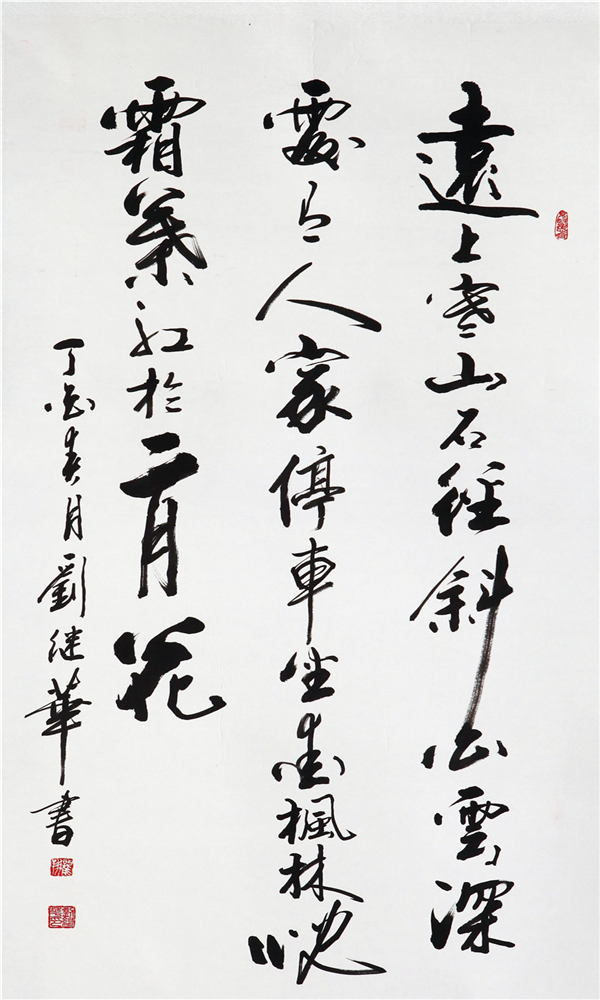 遠上寒山石徑斜白雲深
處有人家停車坐愛楓林晚
霜葉紅於二月花
丁酉春月劉继華書